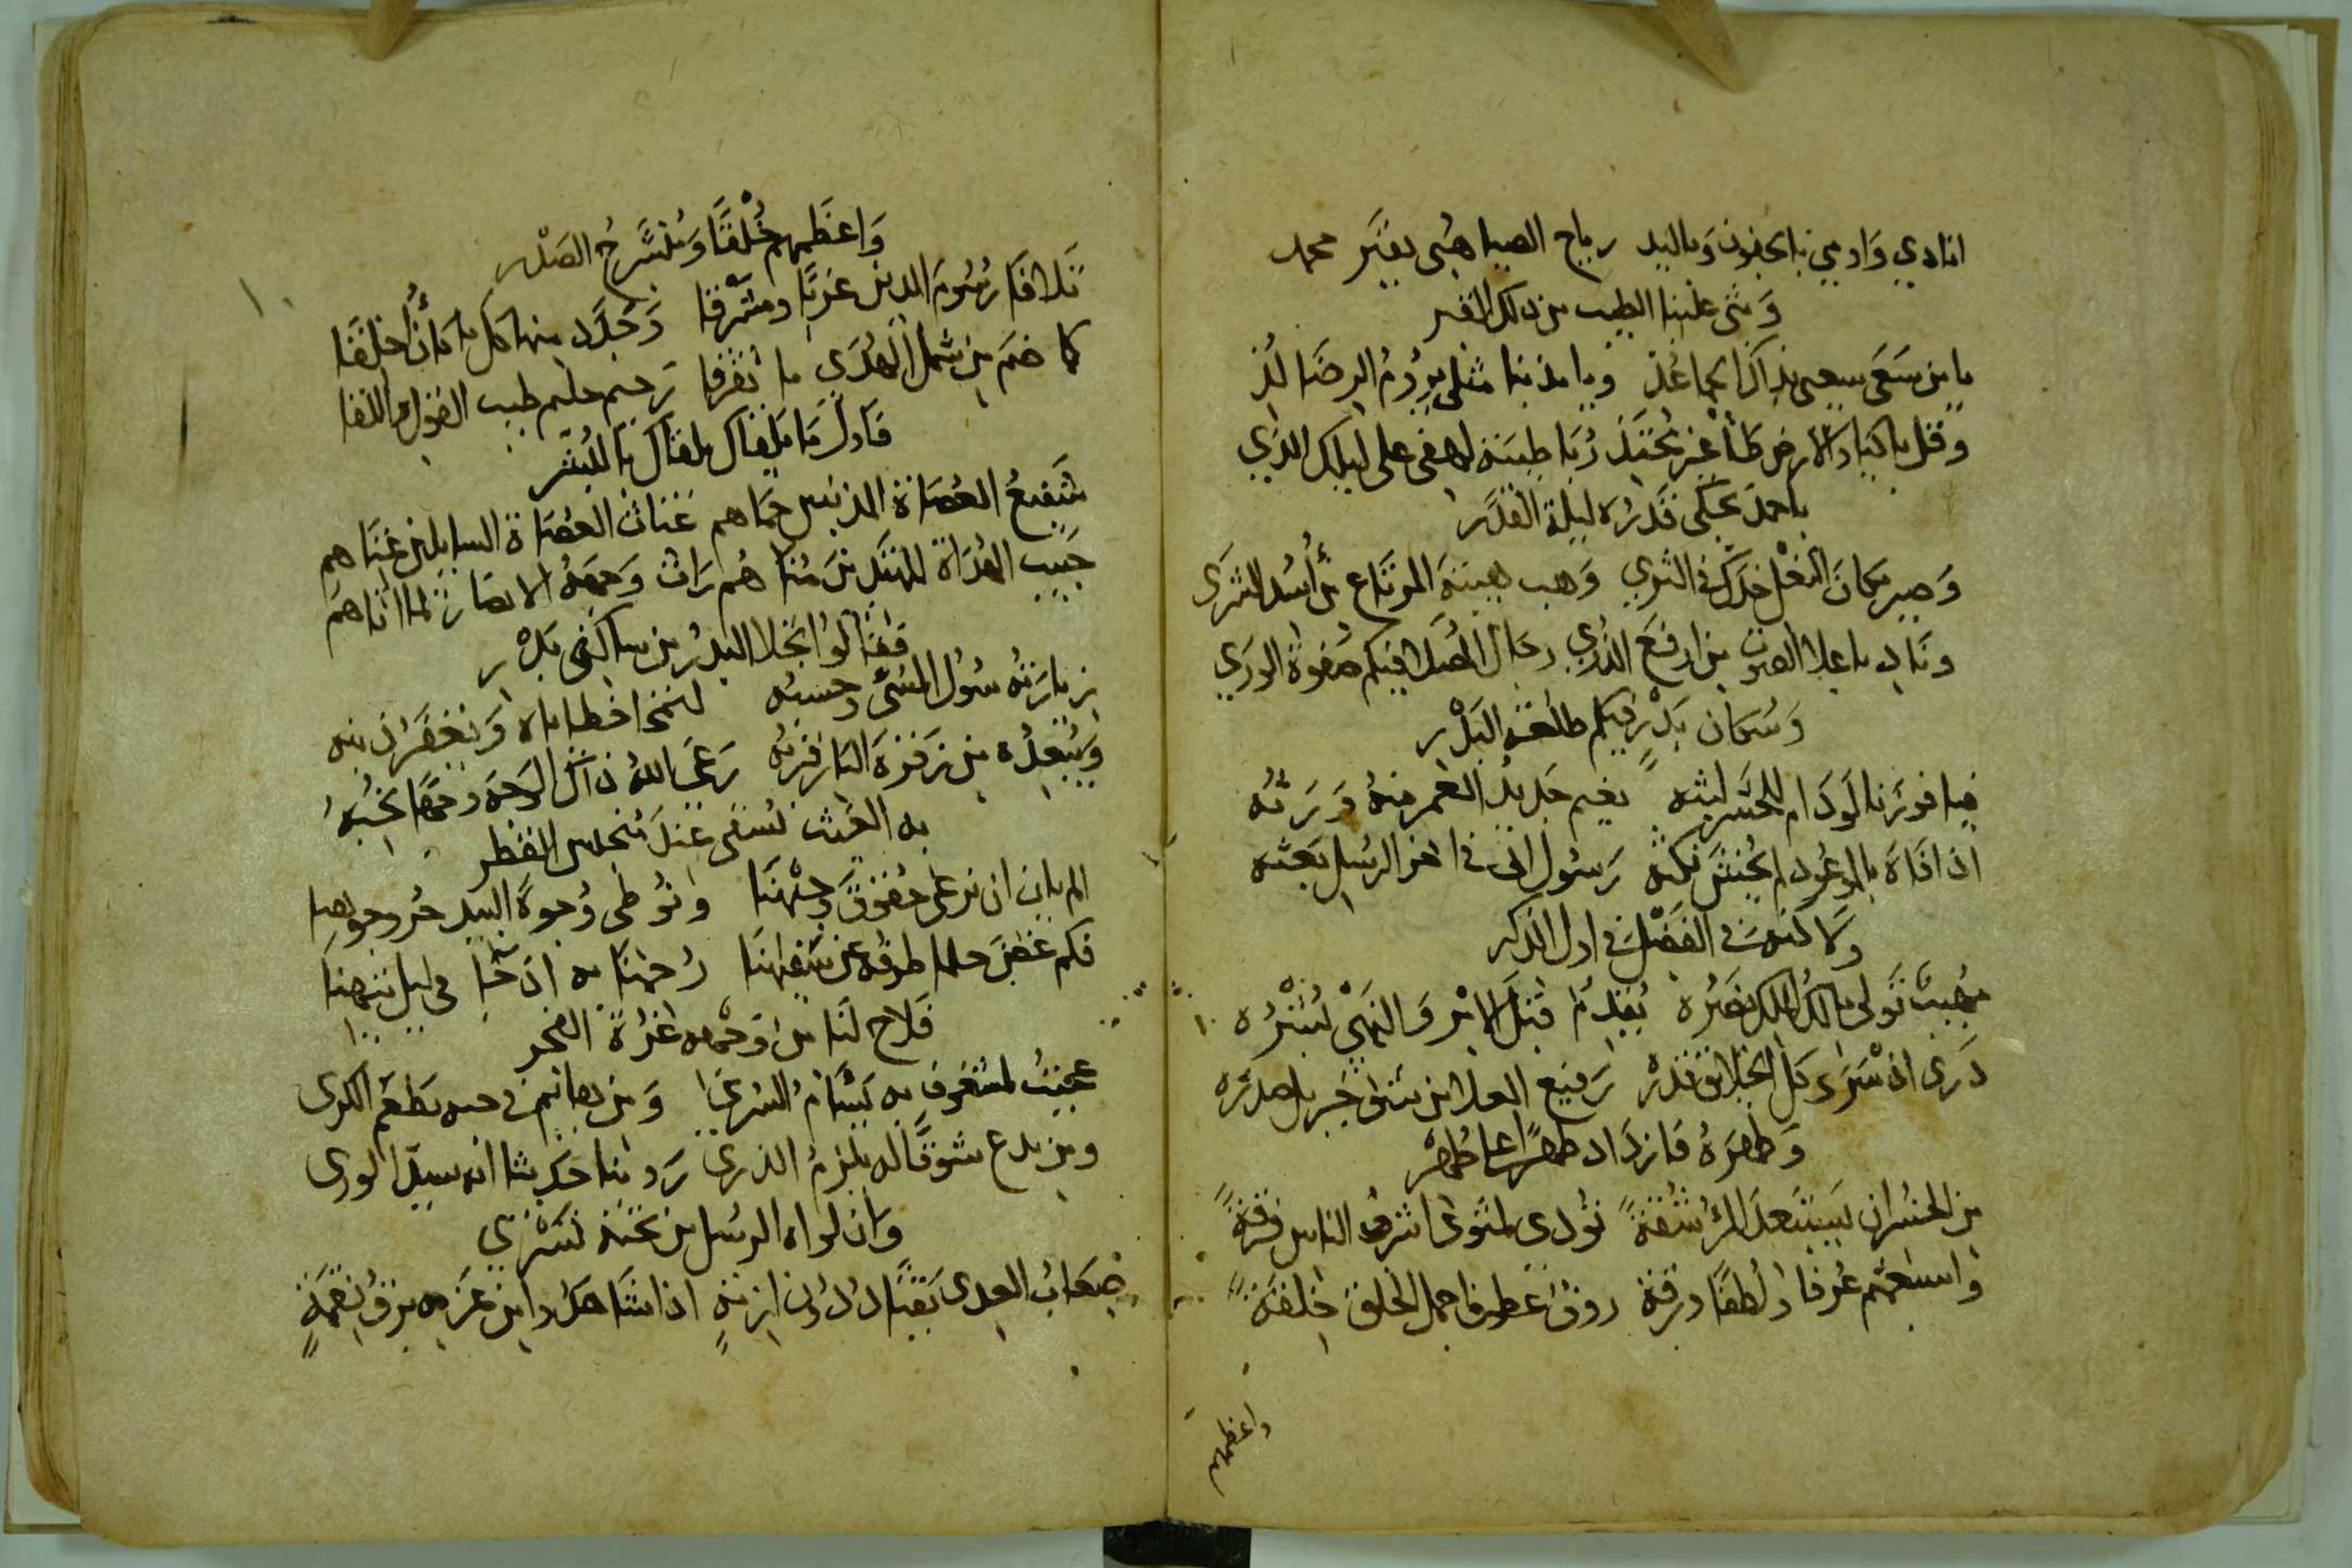 انادي وادمي بالجفون وباليد رياح الصبا هبي بقبر محمد
وثني علينا الطيب من ذلك القبر
يا من سعى سعيي بذاك الحما عذ ويا مذنبا مثلي يروم الرضا لذ
وقل يا كباد الارض طأ غير محتذ ربا طيبة لهفي على ليلك الذي
باحمد يحكي قدره ليلة القدر
وصير مكان النعل خدك في الثرى وهب هيبة المرتاع من أسد الشرى
وناد باعلا الصوت من ارفع الذرى رجال المصلا فيكم صفوة الورى
وسكان بدر فيكم طلعة البدر
فيا فوزنا لو دام للحشر لبثه يغيم جديد العمر منه ورثه
اذا فاه بالموعود لم يخش نكثه رسول اتى في اخر الرسل بعثه
ولاكنه في الفضل في اول الذكر
مهيب تولى مالك الملك نصره يقدم قبل الامر والنهي بشره
درى اذ سرى كل الخلائق قدره رفيع العلا من شق جبريل صدره
وطهره فازداد طهرا على طهر
من الخسران يستبعد المرء شقة تؤدي لمثوى اشرف الناس فرقة
واسبقهم عرفا ولطفا ورقة رووف عطوف اجمل الخلق خلقة
واعظمهم
واعظمهم خلقا ومنشرح الصدر
تلافا رسوم الدين غربا ومشرقا وجدد منها كل ما كان أخلقا
كما ضم من شمل الهدى ما تفرقا رحيم حليم طيب القول واللقا
فاول ما يلقاك يلقاك بالبشر
شفيع العصاة المذنبين حماهم غياث العصاة السايلين غناهم
حبيب الهداة المهتدين مناهم رات وجهه الانصار لما اتاهم
فقالوا تجلا البدر من ساكني بدر
زيارته سول المسيء وحسبه لتمحا خطاياه ويغفر ذنبه
ويبعده من زفرة النار قربه رعى الله ذاك الوجه وجها نحبه
به الغيث نستسقي عند منحبس القطر
الم يان ان نرعى حقوق وجيهنا ونوطي وجوه البيد حر وجوهنا
فكم غض حلما طرفه عن سفيهنا رحمنا به اذ تاه في ليل تيهنا
فلاح لنا من وجهه غرة الفجر
عجبت لمشغوف به يسأم السرى ومن يهايم في حبه يطعم الكرى
ومن يدع شوقا له يلزم الذرى روينا حديثا انه سيد الورى
وان لواء الرسل من تحته تسري
صعاب العدى تنقاد دون ازمة اذا شاهدوا من عزمه برق نقمة